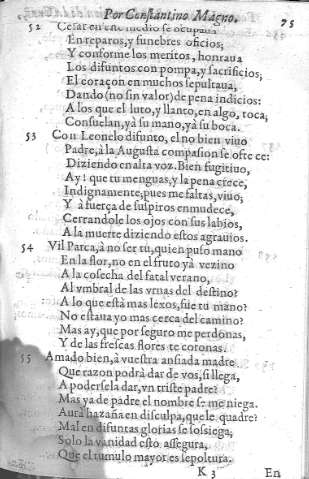 Por Constantino Magno. 75
52 Cesar en este medio se ocupaua
En reparos, y funebres oficios;
Y conforme los meritos, honraua
Los difuntos con pompa, y sacrificios;
El coraçon en muchos sepultaua,
Dando (no sin valor) de pena indicios:
A los que el luto, y llanto, en algo, toca,
Consuelan, yà su mano, yà su boca.
53 Con Leonelo difunto, el no bien viuo
Padre, à la Augusta compasion se ofrece:
Diziendo en alta voz. Bien fugitiuo,
Ay! que tu menguas, y la pena crece,
Indignamente, pues me faltas, viuo;
Y à fuerça de suspiros enmudece,
Cerrandole los ojos con sus labios,
A la muerte diziendo estos agrauios.
54 Vil Parca, à no ser tu, quien puso mano
En la flor, no en el fruto yà vezino
A la cosecha del fatal verano,
Al vmbral de las vrnas del destino?
A lo que està mas lexos, fue tu mano?
No estaua yo mas cerca del camino?
Mas ay, que por seguro me perdonas,
Y de las frescas flores te coronas.
55 Amado bien, à vuestra ansiada madre
Que razon podrà dar de vos, si llega,
A podersela dar, vn triste padre?
Mas ya de padre el nombre se me niega.
Aurà hazaña en disculpa, que le quadre?
Mal en difuntas glorias se sosiega,
Solo la vanidad esto assegura,
Que el tumulo mayor es sepoltura.
K 3 En